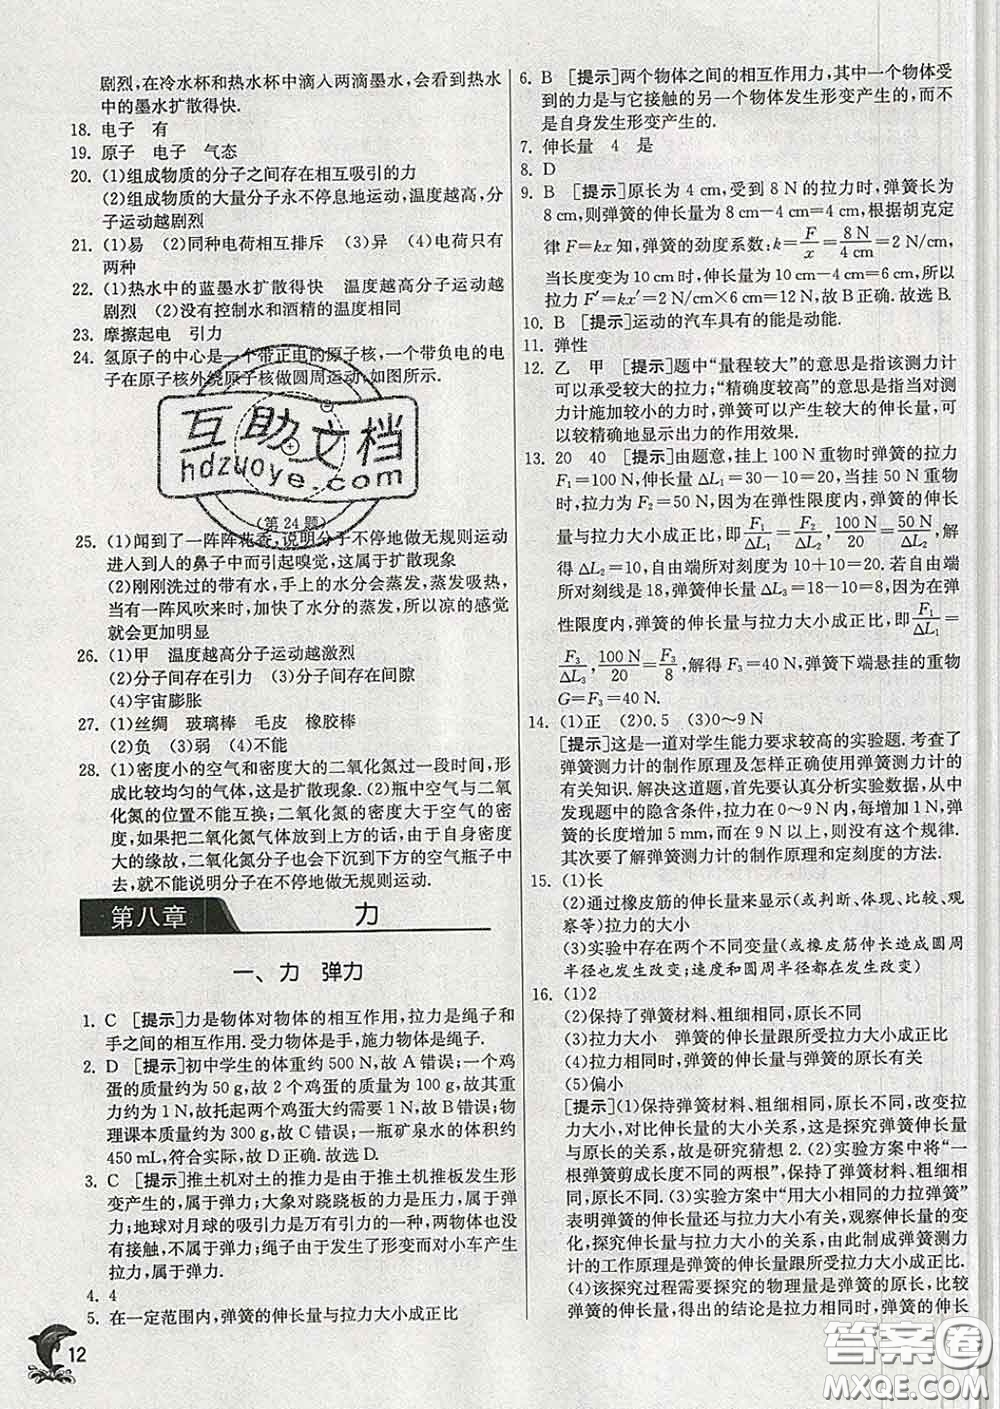 剧烈,在冷水杯和热水杯中滴入两滴墨水,会看到热水
中的墨水扩散得快.
18. 电子 有
19. 原子 电子 气态
20. (1)组成物质的分子之间存在相互吸引的力
(2)组成物质的大量分子永不停息地运动,温度越高,分
子运动越剧烈
21. (1)易 (2)同种电荷相互排斥 (3)异 (4)电荷只有
两种
22. (1)热水中的蓝墨水扩散得快 温度越高分子运动越
剧烈 (2)没有控制水和酒精的温度相同
23. 摩擦起电 引力
24. 氢原子的中心是一个带正电的原子核,一个带负电的电
子在原子核外绕原子核做圆周运动,如图所示.
互助文档
hdzuoye.com
(第 24 题)
25. (1)闻到了一阵阵花香,说明分子不停地做无规则运动
进入到人的鼻子中而引起嗅觉,这属于扩散现象
(2)刚刚洗过的带有水,手上的水分会蒸发,蒸发吸热,
当有一阵风吹来时,加快了水分的蒸发,所以凉的感觉
就会更加明显
26. (1)甲 温度越高分子运动越激烈
(2)分子间存在引力 (3)分子间存在间隙
(4)宇宙膨胀
27. (1)丝绸 玻璃棒 毛皮 橡胶棒
(2)负 (3)弱 (4)不能
28. (1)密度小的空气和密度大的二氧化氮过一段时间,形
成比较均匀的气体,这是扩散现象. (2)瓶中空气与二氧
化氮的位置不能互换;二氧化氮的密度大于空气的密
度,如果把二氧化氮气体放到上方的话,由于自身密度
大的缘故,二氧化氮分子也会下沉到下方的空气瓶子中
去,就不能说明分子在不停地做无规则运动.
第八章 力
一、力 弹力
1. C [提示]力是物体对物体的相互作用,拉力是绳子和
手之间的相互作用.受力物体是手,施力物体是绳子.
2. D [提示]初中学生的体重约 500 N,故 A 错误;一个鸡
蛋的质量约为 50 g,故 2 个鸡蛋的质量为 100 g,故重力
大约为 1 N,故托起两个鸡蛋大约需要 1 N,故 B 错误;物
理课本质量约为 300 g,故 C 错误;一瓶矿泉水的体积约
450 mL,符合实际,故 D 正确.故选 D.
3. C [提示]推土机对土的推力是由于推土机推板发生形
变产生的,属于弹力;大象对跷跷板的力是压力,属于弹
力;地球对月球的吸引力是万有引力的一种,两物体也没
有接触,不属于弹力;绳子由于发生了形变而对小车产生
拉力,属于弹力.
4. 4
5. 在一定范围内,弹簧的伸长量与拉力大小成正比
12
6. B [提示]两个物体之间的相互作用力,其中一个物体受
到的力是与它接触的另一个物体发生形变产生的,而不
是自身发生形变产生的.
7. 伸长量 4 是
8. D
9. B [提示]原长为 4 cm,受到 8 N 的拉力时,弹簧长为
8 cm,则弹簧的伸长量为 8 cm−4 cm=4 cm,根据胡克定
律 F=kx 知,弹簧的劲度系数:k=F/x=8 N/4 cm=2 N/cm,
当长度变为 10 cm 时,伸长量变为 10 cm−4 cm=6 cm,所以
拉力 F′=kx′=2 N/cm×6 cm=12 N,故 B 正确.故选 B.
10. B [提示]运动的汽车具有的能是动能.
11. 弹性
12. 乙 甲 [提示]题中“量程较大”的意思是指该测力计
可以承受较大的拉力;“精确度较高”的意思是指当对测
力计施加较小的力时,弹簧可以产生较大的伸长量,可
以较精确地显示出力的作用效果.
13. 20 40 [提示]由题意,挂上 100 N 重物时弹簧的拉力
F₁=100 N,伸长量 ΔL₁=30−10=20,当挂 50 N 重物
时,拉力为 F₂=50 N,因在弹性限度内,弹簧的伸长量
与拉力大小成正比,即F₁/ΔL₁=F₂/ΔL₂,100 N/20=50 N/ΔL₂,解
得 ΔL₂=10,自由端所对刻度为 10+10=20.若自由端
所对刻线是 18,弹簧伸长量 ΔL₃=18−10=8,因在弹
性限度内,弹簧的伸长量与拉力大小成正比,即F₁/ΔL₁=
F₃/ΔL₃,100 N/20=F₃/8,解得 F₃=40 N,弹簧下端悬挂的重物
G=F₃=40 N.
14. (1)正 (2)0.5 (3)0～9 N
[提示]这是一道对学生能力要求较高的实验题.考查了
弹簧测力计的制作原理及怎样正确使用弹簧测力计的
有关知识.解决这道题,首先要认真分析实验数据,从中
发现题中的隐含条件,拉力在 0～9 N 内,每增加 1 N,弹
簧的长度增加 5 mm,而在 9 N 以上,则没有这个规律.
其次要了解弹簧测力计的制作原理和定刻度的方法.
15. (1)长
(2)通过橡皮筋的伸长量来显示(或判断、体现、比较、观
察等)拉力的大小
(3)实验中存在两个不同变量(或橡皮筋伸长造成圆周
半径也发生改变;速度和圆周半径都在发生改变)
16. (1)2
(2)保持了弹簧材料、粗细相同,原长不同
(3)拉力大小 弹簧的伸长量跟所受拉力大小成正比
(4)拉力相同时,弹簧的伸长量与弹簧的原长有关
(5)偏小
[提示](1)保持弹簧材料、粗细相同,原长不同,改变拉
力大小,对比伸长量的大小关系,这是探究伸长量与弹
簧原长的关系,故是研究猜想 2. (2)实验方案中将“一
根弹簧剪成长度不同的两根”,保持了弹簧材料、粗细相
同,改变弹簧的原长. (3)实验方案中“用大小相同的力拉弹簧”
表明弹簧的伸长量还与拉力大小有关,观察伸长量的变
化,探究伸长量与拉力大小的关系,由此制成弹簧测力
计的工作原理是弹簧的伸长量跟所受拉力大小成正比.
(4)该探究过程需要探究的物理量是弹簧的原长,比较
弹簧的伸长量,得出的结论是拉力相同时,弹簧的伸长
答案圈
MXQE.COM